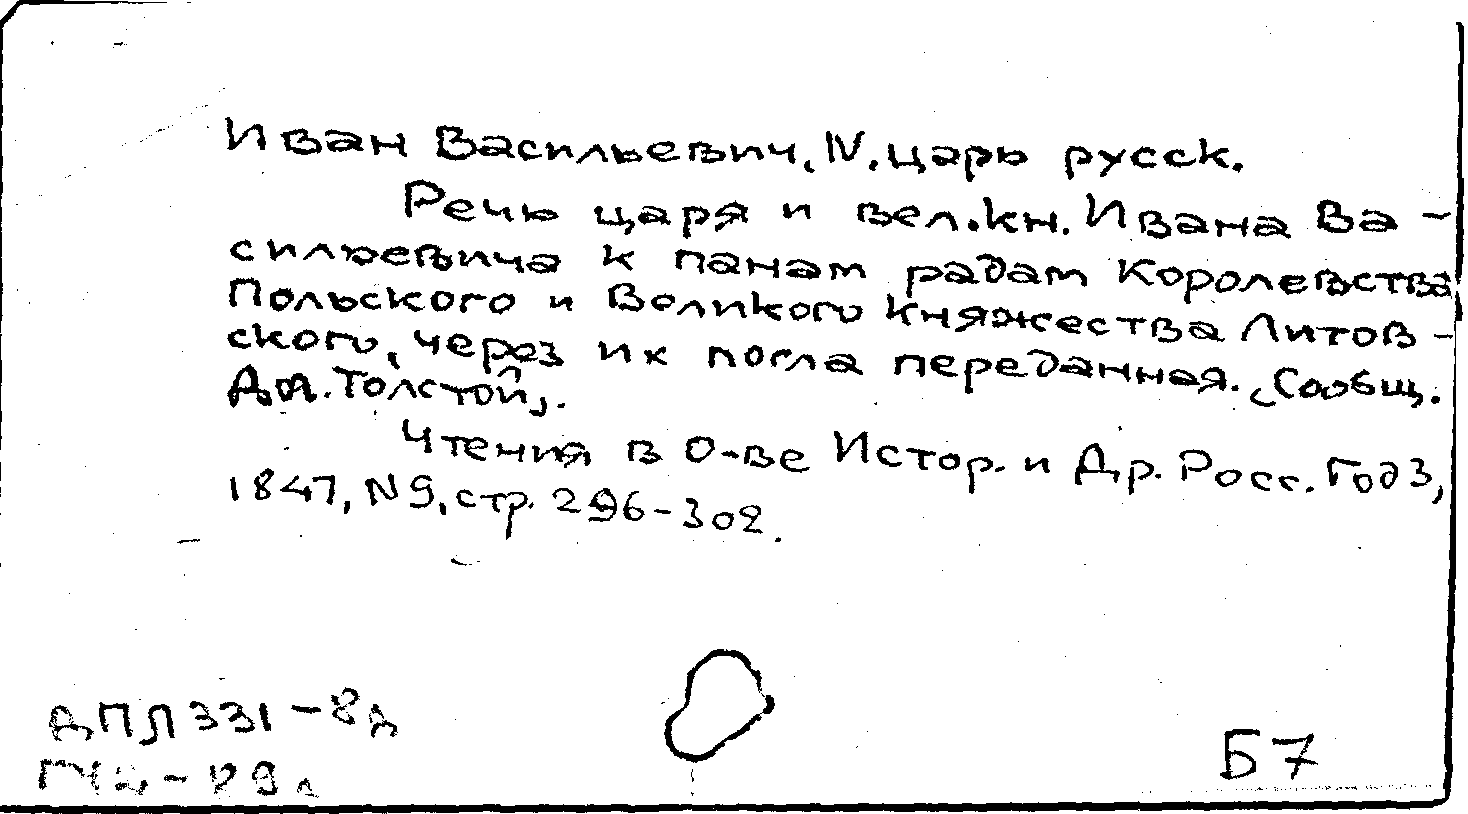 Иван Васильевич, IV, царь русск.
Речь царя и вел.кн. Ивана Ва-
сильевича к панам радам Королевства
Польского и Великого Княжества Литов-
ского, через их посла переданная. (Сообщ.
Дм. Толстой).
Чтения в О-ве Истор. и Др. Росс. Год 3,
1847, N 9, стр. 296-302.
ДПЛ 331-8д
Б7